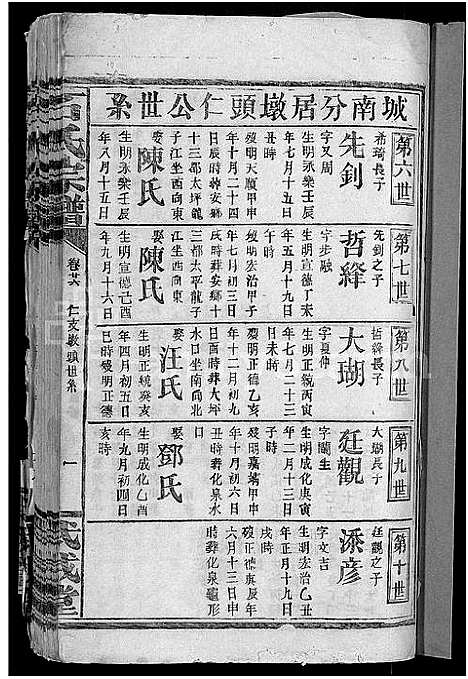 城南分居墩頭仁公世系
第六世
希琦長子
先釗
字又周
生明永樂壬辰
年七月十五日
丑時
歿明天順甲申
年十月二十四
日辰時葬安鄉
十三都太坪龍
子江坐西向東
娶陳氏
生明永樂壬辰
年八月十五日
第七世
先釗之子
哲絳
字步融
生明宣德丁未
年五月十九日
時
歿明宏治甲子
年七月初三日
時葬安鄉十
三都太平龍子
江坐西向東
娶陳氏
生明宣德己酉
年九月十六日
第八世
哲絳長子
大瑚
字夏伸
生明正統丙寅
年二月二十三
日未時
歿明正德乙亥
年十二月初九
日酉時葬大坪
水口坐南向北
娶汪氏
生明正統癸亥
年四月初五日
巳時歿明正德
第九世
大瑚長子
廷觀
字闇生
生明成化庚寅
年二月十三日
時
歿明嘉靖甲申
年十月初六日
丑時葬化泉水
口
娶鄧氏
生明成化乙酉
年九月初四日
亥時
第十世
廷觀之子
添彥
字文吉
生明宏治乙丑
年正月十九日
戌時
歿正德庚辰年
六月十三日申
時葬化泉龜形
氏宗譜
卷廿六
仁支墩頭世系
一
武威堂